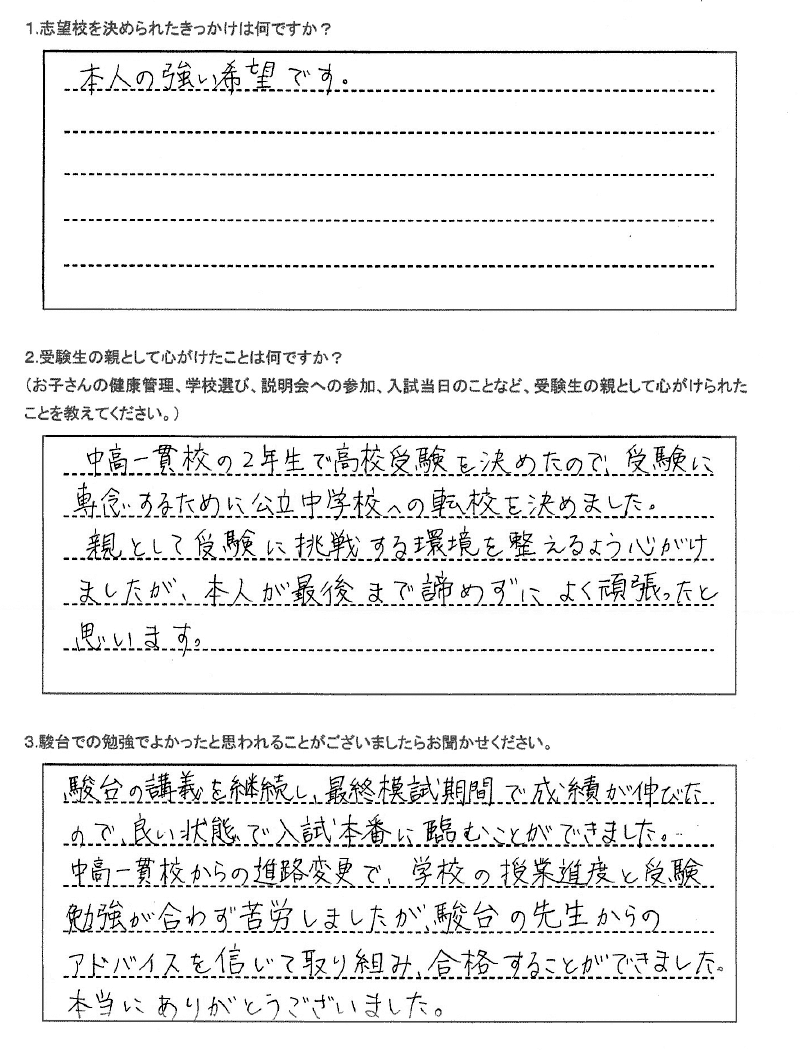 1.志望校を決められたきっかけは何ですか？
本人の強い希望です。
2.受験生の親として心がけたことは何ですか？
（お子さんの健康管理、学校選び、説明会への参加、入試当日のことなど、受験生の親として心がけられた
ことを教えてください。）
中高一貫校の2年生で高校受験を決めたので、受験に
専念するために公立中学校への転校を決めました。
親として受験に挑戦する環境を整えるよう心がけ
ましたが、本人が最後まで諦めずによく頑張ったと
思います。
3.駿台での勉強でよかったと思われることがございましたらお聞かせください。
駿台の講義を継続し、最終模試期間で成績が伸びた
ので、良い状態で入試本番に臨むことができました。
中高一貫校からの進路変更で、学校の授業進度と受験
勉強が合わず苦労しましたが、駿台の先生からの
アドバイスを信じて取り組み、合格することができました。
本当にありがとうございました。